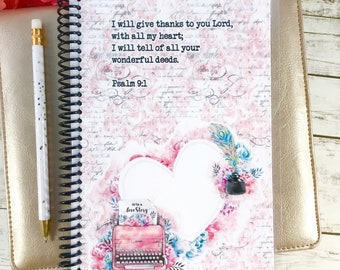 I will give thanks to you Lord,
with all my heart;
I will tell of all your
wonderful deeds.
Psalm 9:1
love story